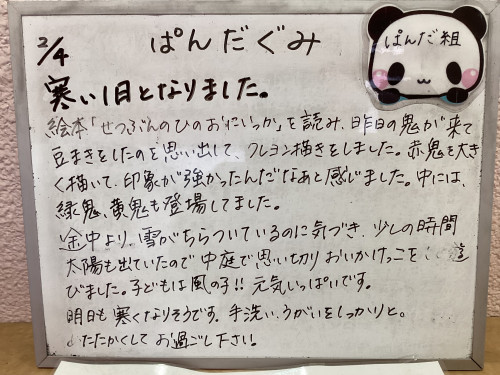 2/4
ぱんだぐみ
ぱんだ組
寒い1日となりました。
絵本「せつぶんのひのおにいっか」を読み、昨日の鬼が来て
豆まきをしたのを思い出して、クレヨン描きをしました。赤鬼を大き
く描いて、印象が強かったんだなあと感じました。中には、
緑鬼、黄鬼も登場してました。
途中より、雪がちらついているのに気づき、少しの時間
太陽も出ていたので中庭で思い切りおいかけっこを 遊
びました。子どもは風の子!! 元気いっぱいです。
明日も寒くなりそうです。手洗い、うがいをしっかりと。
たたかくしてお過ごし下さい。